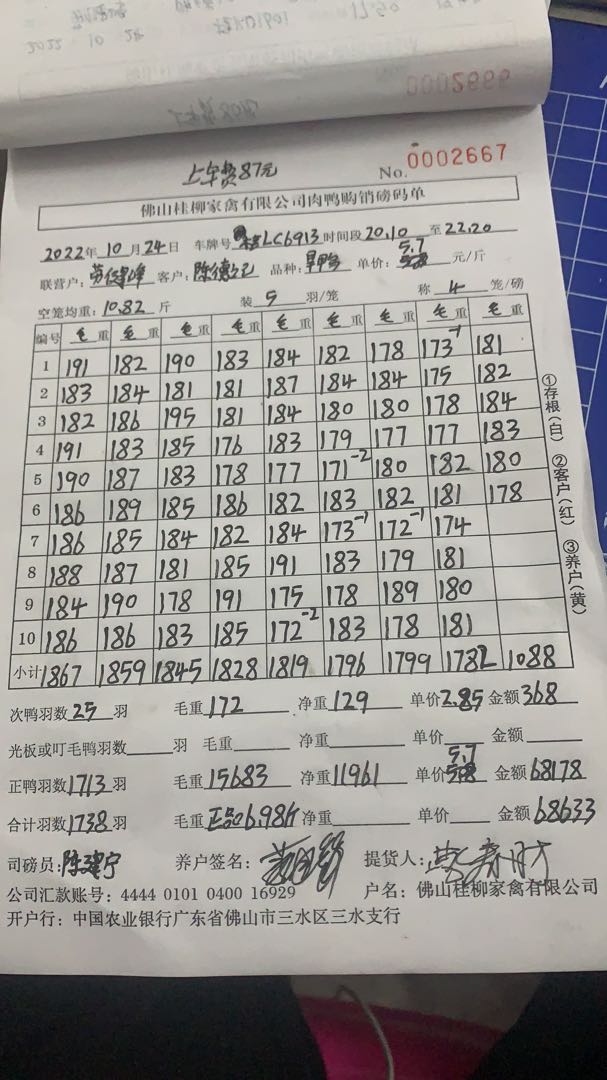 2022 10 24
0002666
上车费87元
No. 0002667
佛山桂柳家禽有限公司肉鸭购销磅码单
2022年10月24日 车牌号 LC6913 时间段 20.10 至 22.20
联营户: 客户: 陈德记 品种: 单价: 5.7 元/斤
空笼均重: 10.82 斤 装 5 羽/笼 称 4 笼/磅
编号 毛重 毛重 毛重 毛重 毛重 毛重 毛重 毛重 毛重
1 191 182 190 183 184 182 178 173-1 181
2 183 184 181 181 187 184 184 175 182
3 182 186 195 181 184 180 180 178 184
4 191 183 185 176 183 179 177 177 183
5 190 187 183 178 177 171-2 180 182 180
6 186 189 185 186 182 183 182 181 178
7 186 185 184 182 184 173-1 172-1 174
8 188 187 181 185 191 183 179 181
9 184 190 178 191 175 178 189 180
10 186 186 183 185 172-2 183 178 181
小计 1867 1859 1845 1828 1819 1796 1799 1782 1088
①存根(白) ②客户(红) ③养户(黄)
次鸭羽数 25 羽 毛重 172 净重 129 单价 2.85 金额 368
光板或叮毛鸭羽数 羽 毛重 净重 单价 金额
正鸭羽数 1713 羽 毛重 15683 净重 11961 单价 5.7 金额 68178
合计羽数 1738 羽 毛重 正品6.98斤 净重 单价 金额 68633
司磅员: 陈建宁 养户签名: 提货人:
公司汇款账号: 4444 0101 0400 16929 户名: 佛山桂柳家禽有限公司
开户行: 中国农业银行广东省佛山市三水区三水支行